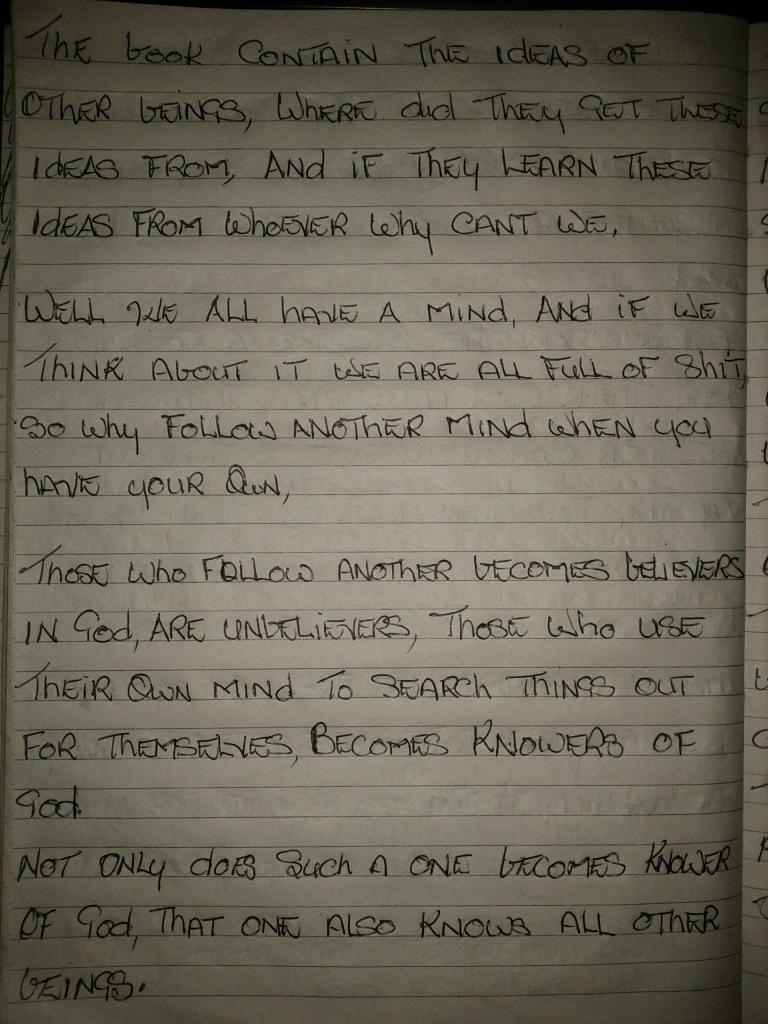 The book CONTAIN THE IdEAS OF
OTHER bEINGS, WHERE did THEy GET THESE
IdEAS FROM, ANd iF THEy LEARN THESE
IdEAS FROM WhoEVER Why CANT WE,
WELL WE ALL hAVE A MINd, ANd iF WE
ThINK AbOUT IT WE ARE ALL FULL OF ShiT,
SO Why FOLLOW ANOTHER MINd whEN you
hAVE yOUR OwN,
ThoSE Who FOLLOW ANOTHER bECOMES bELIEVERS
IN God, ARE UNbELIEVERS, ThOSE Who USE
ThEiR OwN MINd To SEARCh ThINGS OUT
FOR ThEMSELVES, BECOMES KNOWERS OF
God.
NOT ONLy doES Such A ONE bECOMES KNOWER
OF God, ThAT ONE ALSO KNOWS ALL OTHER
bEINGS.